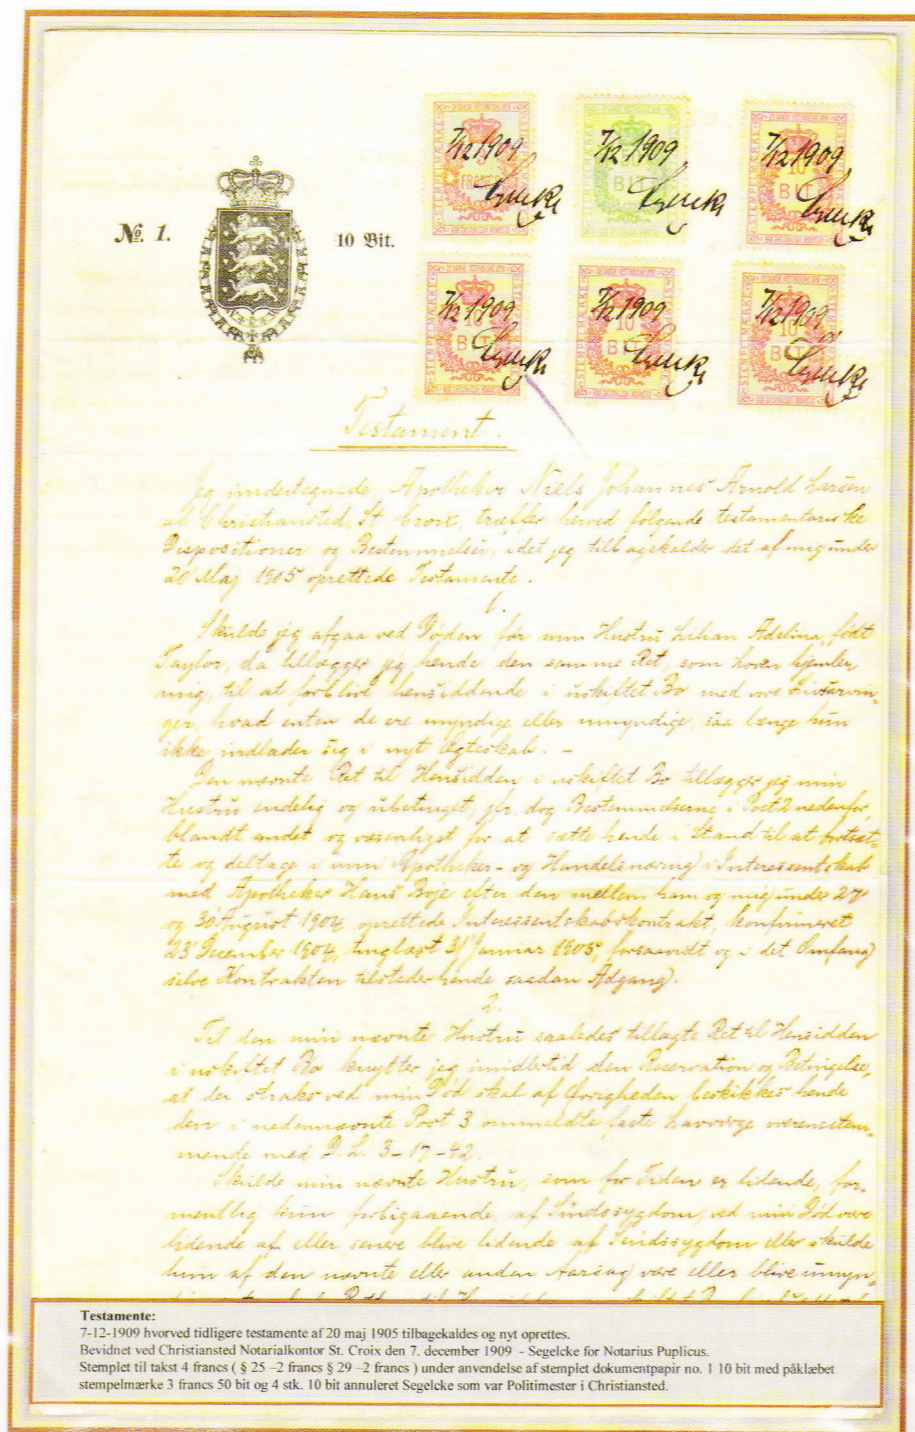 №. 1.
10 Bit.
STEMPELMÆRKE
FRANCS
7/12 1909
Segelcke
STEMPELMÆRKE
BIT
7/12 1909
Segelcke
STEMPELMÆRKE
10
BIT
7/12 1909
Segelcke
STEMPELMÆRKE
10
BIT
7/12 1909
Segelcke
STEMPELMÆRKE
10
BIT
7/12 1909
Segelcke
STEMPELMÆRKE
10
BIT
7/12 1909
Segelcke
Testament.
Jeg undertegnede, Apotheker Niels Johannes Arnold Larsen
af Christiansted, St. Croix, træffer herved følgende testamentariske
Dispositioner og Bestemmelser, idet jeg tilbagekalder det af mig under
20 Maj 1905 oprettede Testamente.
1.
Skulde jeg afgaa ved Døden før min Hustru Lilian Adelina, født
Taylor, da tillægger jeg hende den samme Ret, som Loven hjemler
mig, til at forblive hensiddende i uskiftet Bo med vore Livsarvin-
ger, hvad enten de ere myndige eller umyndige, saa længe hun
ikke indlader sig i nyt Ægteskab. –
Den nævnte Ret til Hensidden i uskiftet Bo tillægger jeg min
Hustru endelig og ubetinget, jfr. dog Bestemmelserne i Post 2 nedenfor,
blandt andet og væsentligst for at sætte hende i Stand til at fortsæt-
te og deltage i min Apotheker- og Handelsnæring i Interessentskab
med Apotheker Hans Boje efter den mellem ham og mig under 27
og 30 August 1904 oprettede Interessentskabskontrakt, konfirmeret
23 December 1904, tinglæst 31 Januar 1905, forsaavidt og i det Omfang
selve Kontrakten tilsteder hende saadan Adgang.
2.
Til den min nævnte Hustru saaledes tillagte Ret til Hensidden
i uskiftet Bo knytter jeg imidlertid den Reservation og Betingelse,
at der straks ved min Død skal af Øvrigheden beskikkes hende
den i nedennævnte Post 3 ommeldte faste Lavværge overensstem-
mende med D. L. 3-17-42.
Skulde min nævnte Hustru, som for Tiden er lidende, for-
mentlig kun forbigaaende, af Sindssygdom, ved min Død være
lidende af eller senere blive lidende af Sindssygdom eller skulde
hun af den nævnte eller anden Aarsag være eller blive umyn-
Testamente:
7-12-1909 hvorved tidligere testamente af 20 maj 1905 tilbagekaldes og nyt oprettes.
Bevidnet ved Christiansted Notarialkontor St. Croix den 7. december 1909 - Segelcke for Notarius Puplicus.
Stemplet til takst 4 francs ( § 25 –2 francs § 29 –2 francs ) under anvendelse af stemplet dokumentpapir no. 1 10 bit med påklæbet
stempelmærke 3 francs 50 bit og 4 stk. 10 bit annuleret Segelcke som var Politimester i Christiansted.